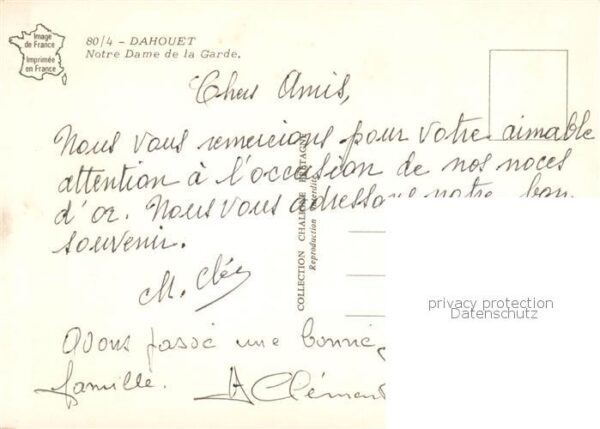 Image
de France
Imprimée
en France
80/4 – DAHOUET
Notre Dame de la Garde.
Chers Amis,
Nous vous remercions pour votre aimable
attention à l'occasion de nos noces
d'or. Nous vous adressons notre bon
souvenir.
M. Clé
Avons passé une bonne
famille. A Clément
COLLECTION CHALEINE BRETAGNE
Reproduction interdite
privacy protection
Datenschutz